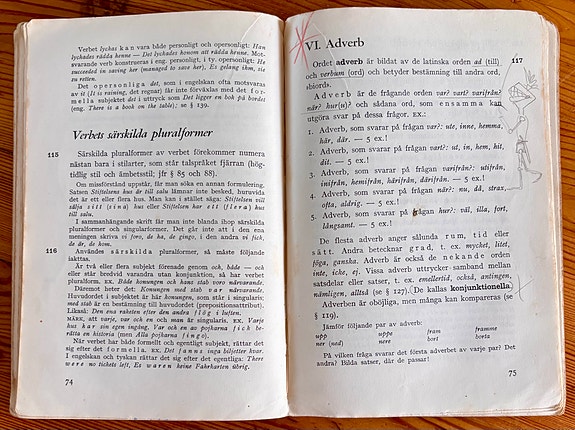 Verbet lyckas kan vara både personligt och opersonligt: Han
lyckades rädda henne — Det lyckades honom att rädda henne. Mot-
svarande verb konstrueras i eng. personligt, i ty. opersonligt: He
succeeded in saving her (managed to save her), Es gelang ihm, sie
zu retten.
Det opersonliga det, som i engelskan ofta motsvaras
av it (It is raining, det regnar) får inte förväxlas med det for-
mella subjektet det i uttryck som Det ligger en bok på bordet
(eng. There is a book on the table); se § 139.
Verbets särskilda pluralformer
115 Särskilda pluralformer av verbet förekommer numera
nästan bara i stilarter, som står talspråket fjärran (hög-
tidlig stil och ämbetsstil; jfr § 85 och 88).
Om missförstånd uppstår, får man söka en annan formulering.
Satsen Stiftelserna har år till salu lämnar inte besked, huruvida
det är ett eller flera hus. Man kan i stället säga: Stiftelsen vill
sälja sitt (sina) hus eller Stiftelsen har ett (flera) hus
till salu.
I sammanhängande skrift lär man inte blanda ihop särskilda
pluralformer och singularformer. Det går inte att i den ena
meningen skriva vi foro, de ha, de gingo, i den andra vi fick,
de är, de kom.
116 Användes särskilda pluralformer, så måste följande
iakttas.
Är två eller flera subjekt förenade genom och, både — och
eller står bredvid varandra utan konjunktion, så har verbet
pluralform. EX. Både konungen och hans stab voro närvarande.
Däremot heter det: Konungen med stab var närvarande.
Huvudordet i subjektet är här konungen, som står i singularis;
med stab är en bestämning till huvudordet (prepositionsattribut).
Likaså: Den ena raketen efter den andra flög i luften.
MÄRK, att varje, var och en och man är singularis. EX. Varje
hus har sin egen ingång. Var och en av pojkarna fick be-
rätta en historia (men Alla pojkarna fingo).
När verbet har både formellt och egentligt subjekt, rättar det
sig efter det formella. EX. Det fanns inga biljetter kvar.
I engelskan och tyskan rättar det sig efter det egentliga: There
were no tickets left, Es waren keine Fahrkarten übrig.
74
VI. Adverb
Ordet adverb är bildat av de latinska orden ad (till) 117
och verbum (ord) och betyder bestämning till andra ord,
sbiords.
Adverb är de frågande orden var? vart? varifrån?
när? hur(u)? och sådana ord, som ensamma kan
utgöra svar på dessa frågor. EX.:
1. Adverb, som svarar på frågan var?: ute, inne, hemma,
här, där. — 5 ex.!
2. Adverb, som svarar på frågan vart?: ut, in, hem, hit,
dit. — 5 ex.!
3. Adverb, som svarar på frågan varifrån?: utifrån,
inifrån, hemifrån, härifrån, därifrån. — 5 ex.!
4. Adverb, som svarar på frågan när?: nu, då, strax,
ofta, aldrig. — 5 ex.!
5. Adverb, som svarar på frågan hur?: väl, illa, fort,
långsamt. — 5 ex.!
De flesta adverb anger sålunda rum, tid eller
sätt. Andra betecknar grad, t. ex. mycket, litet,
föga, ganska. Adverb är också de nekande orden
inte, icke, ej. Vissa adverb uttrycker samband mellan
satsdelar eller satser, t. ex. emellertid, också, antingen,
nämligen, alltså (se § 127). De kallas konjunktionella.
Adverben är oböjliga, men många kan kompareras (se
§ 119).
Jämför följande par av adverb:
upp uppe fram framme
ner (ned) nere bort borta
På vilken fråga svarar det första adverbet av varje par? Det
andra? Bilda satser, där de passar!
75